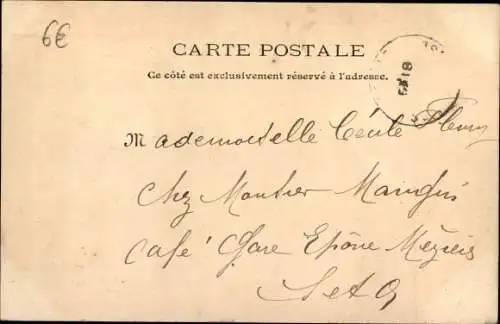 6€
CARTE POSTALE
Ce côté est exclusivement réservé à l'adresse.
Mademoiselle Cécile Fleury
chez Monsier
Café Gare Epône Mézieis
S et O